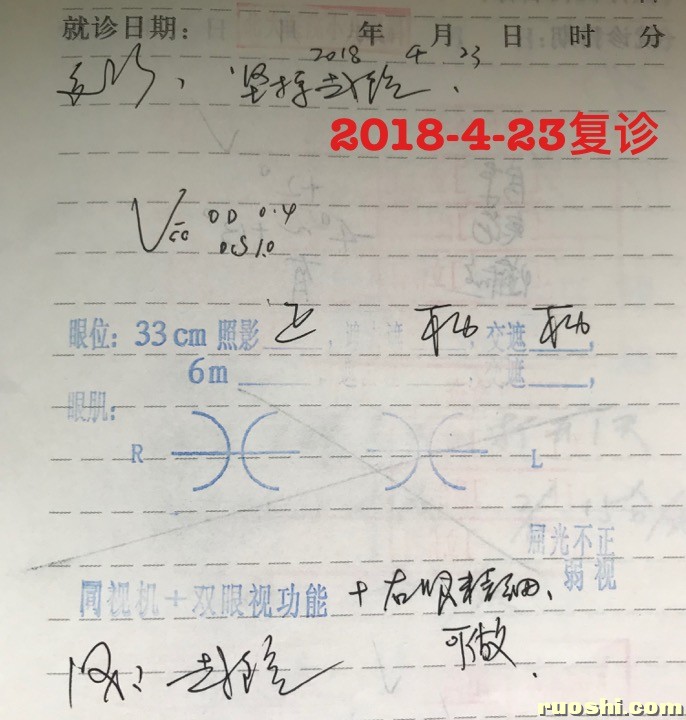 就诊日期: 年 月 日 时 分
2018 4 23
复诊、坚持戴镜.
2018-4-23复诊
V cc OD 0.4
OS 1.0
眼位: 33cm 照影 正 , 遮 不动 , 交遮 不动 ,
6m , 交遮 ,
眼肌:
R L
屈光不正
弱视
同视机+双眼视功能 + 右眼精细、
可做.
戴镜
ruoshi.com